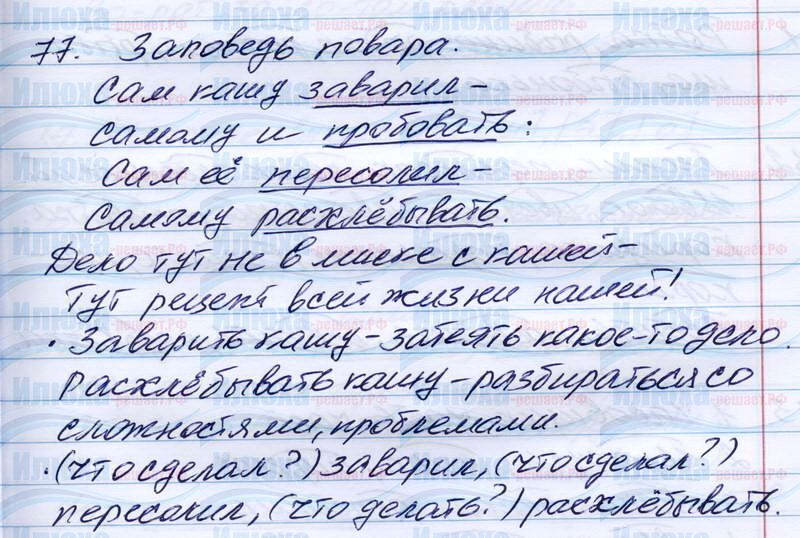 77. Заповедь повара.
Сам кашу заварил -
самому и пробовать:
Сам её пересолил -
самому расхлёбывать.
Дело тут не в миске с кашей -
тут рецепт всей жизни нашей!
• Заварить кашу - затеять какое-то дело.
Расхлёбывать кашу - разбираться со
сложностями, проблемами.
• (что сделал?) заварил, (что сделал?)
пересолил, (что делать?) расхлёбывать.